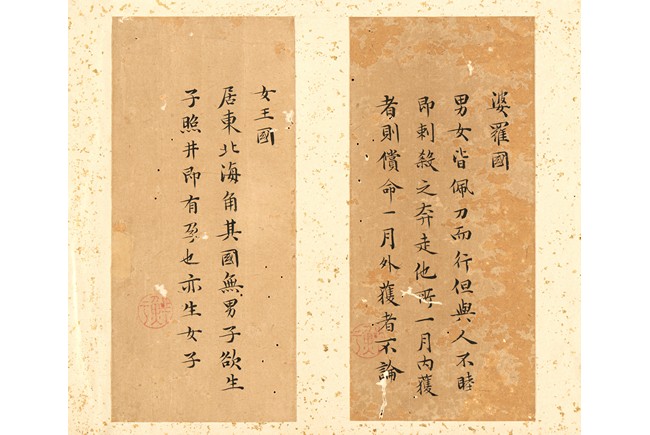 婆羅國
男女皆佩刀而行但與人不睦
即刺殺之奔走他所一月内獲
者則償命一月外獲者不論
女王國
居東北海角其國無男子欲生
子照井即有孕也亦生女子